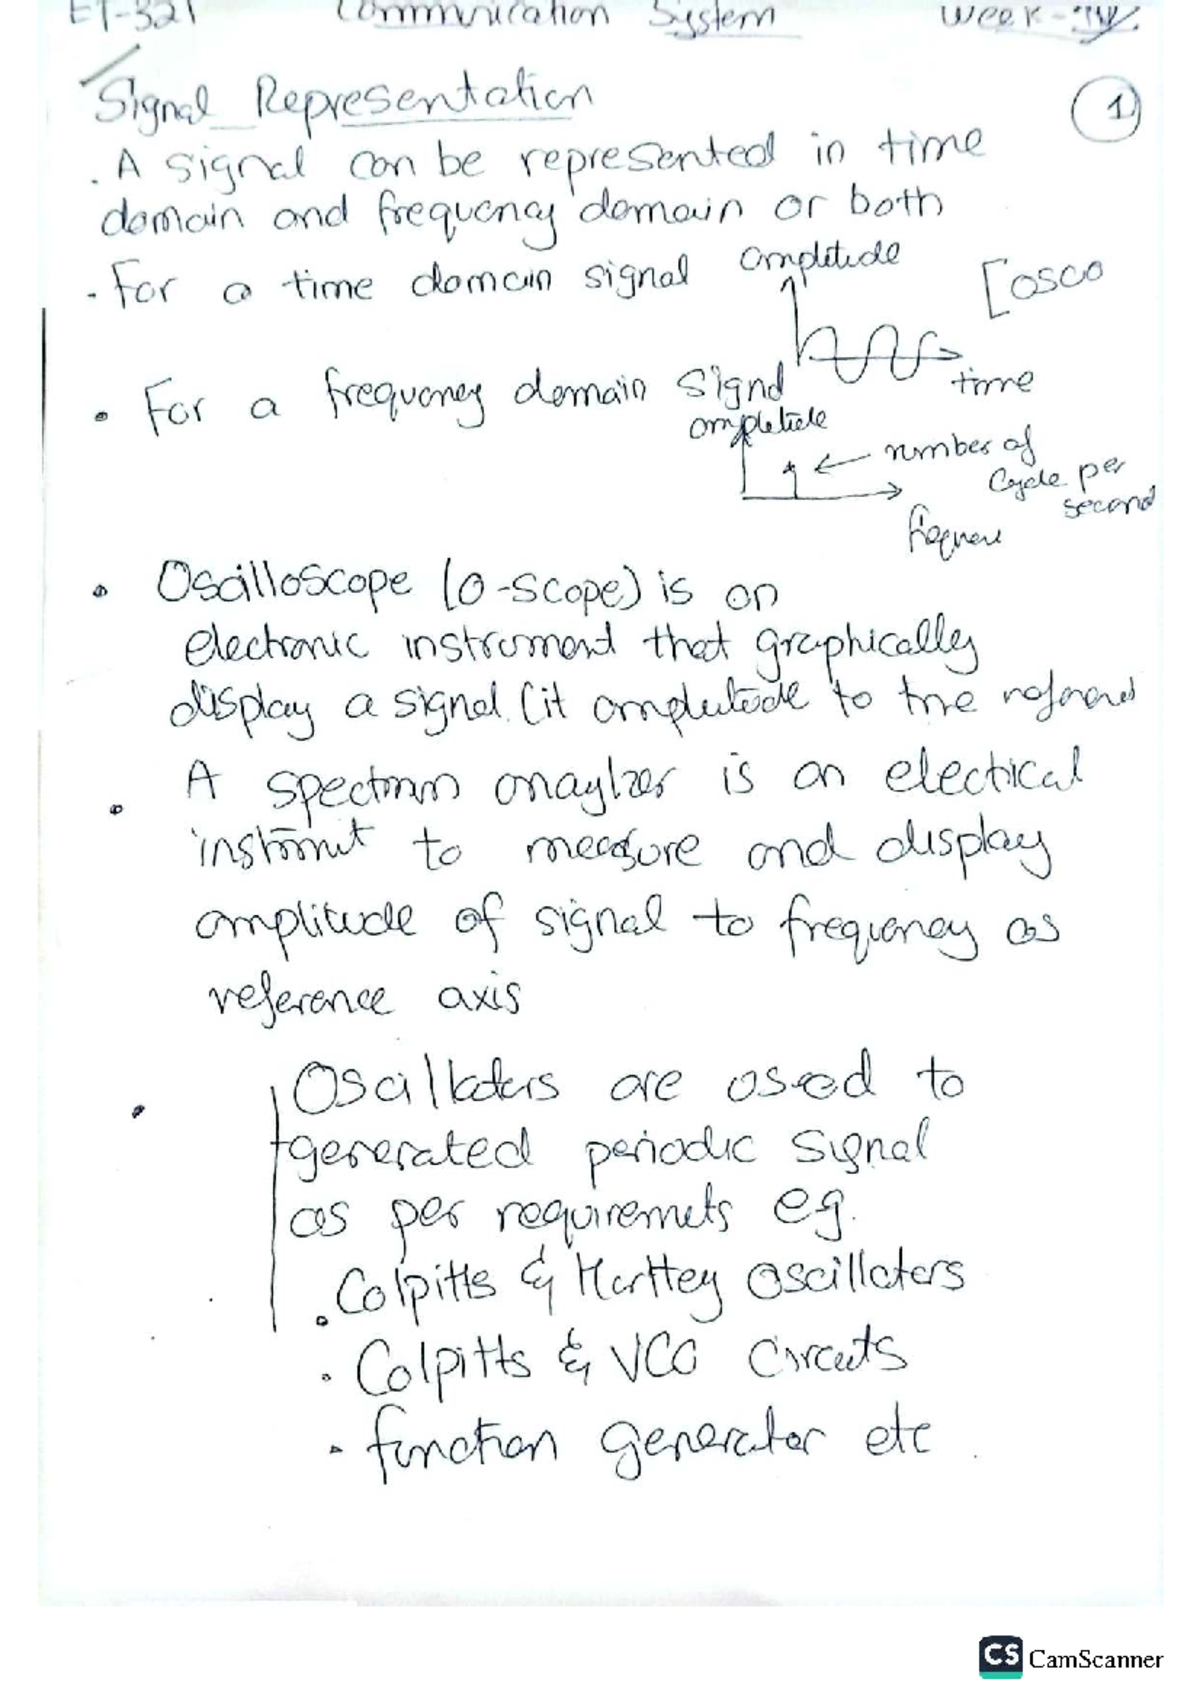 ET-321 Communication System Week-
Signal Representation
1
. A signal can be represented in time
domain and frequency domain or both
. For a time domain signal
amplitude
[osco
time
. For a frequency domain signal
amplitude
number of
cycle per
second
. Oscilloscope (O-scope) is an
electronic instrument that graphically
display a signal (it amplitude to time
. A spectrum anaylzer is an electical
to measure and display
amplitude of signal to frequency as
reference axis
. Oscillators are used to
generated periodic signal
as per requiremets eg.
. Colpitts & Harttey Oscillators
. Colpitts & VCO Circuts
. function generator etc
CS CamScanner